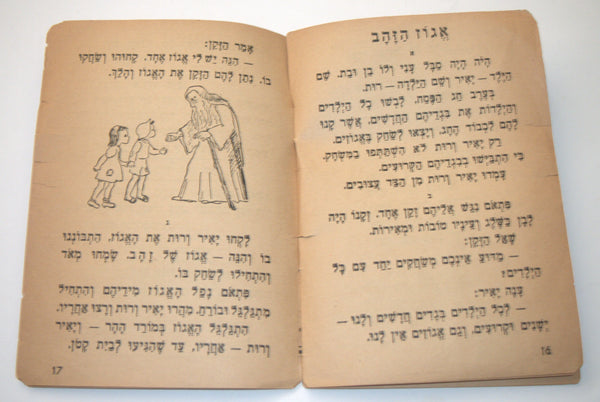 אֱגוֹז הַזָּהָב
א
הָיֹה הָיָה סַבָּל עָנִי וְלוֹ בֵן וּבַת. שֵׁם
הַיֶּלֶד — יָאִיר וְשֵׁם הַיַּלְדָּה — רוּת.
בְּעֶרֶב חַג הַפֶּסַח. לָבְשׁוּ כָּל הַיְלָדִים
וְהַיְלָדוֹת אֶת בִּגְדֵיהֶם הַחֲדָשִׁים, אֲשֶׁר קָנוּ
לָהֶם לִכְבוֹד הֶחָג, וְיָצְאוּ לְשַׂחֵק בֶּאֱגוֹזִים.
רַק יָאִיר וְרוּת לֹא הִשְׁתַּתְּפוּ בַּמִּשְׂחָק,
כִּי הִתְבַּיְּשׁוּ בְּבִגְדֵיהֶם הַקְּרוּעִים.
עָמְדוּ יָאִיר וְרוּת מִן הַצַּד עֲצוּבִים.
ב
פִּתְאֹם נִגַּשׁ אֲלֵיהֶם זָקֵן אֶחָד. זְקָנוֹ הָיָה
לָבָן כַּשֶּׁלֶג וְעֵינָיו טוֹבוֹת וּמְאִירוֹת.
שָׁאַל הַזָּקֵן:
— מַדּוּעַ אֵינְכֶם מְשַׂחֲקִים יַחַד עִם כָּל
הַיְלָדִים?
עָנָה יָאִיר:
— לְכָל הַיְלָדִים בְּגָדִים חֲדָשִׁים וְלָנוּ —
יְשָׁנִים וּקְרוּעִים, וְגַם אֱגוֹזִים אֵין לָנוּ.
16
אָמַר הַזָּקֵן:
— הִנֵּה יֵשׁ לִי אֱגוֹז אֶחָד. קָחוּהוּ וְשַׂחֲקוּ
בוֹ. נָתַן לָהֶם הַזָּקֵן אֶת הָאֱגוֹז וְהָלַךְ.
ג
לָקְחוּ יָאִיר וְרוּת אֶת הָאֱגוֹז, הִתְבּוֹנְנוּ
בוֹ וְהִנֵּה — אֱגוֹז שֶׁל זָהָב. שָׂמְחוּ מְאֹד
וְהִתְחִילוּ לְשַׂחֵק בּוֹ.
פִּתְאֹם נָפַל הָאֱגוֹז מִידֵיהֶם וְהִתְחִיל
מִתְגַּלְגֵּל וּבוֹרֵחַ. מִהֲרוּ יָאִיר וְרוּת וְרָצוּ אַחֲרָיו.
הִתְגַּלְגֵּל הָאֱגוֹז בְּמוֹרַד הָהָר — וְיָאִיר
וְרוּת — אַחֲרָיו, עַד שֶׁהִגִּיעוּ לְבַיִת קָטֹן.
17